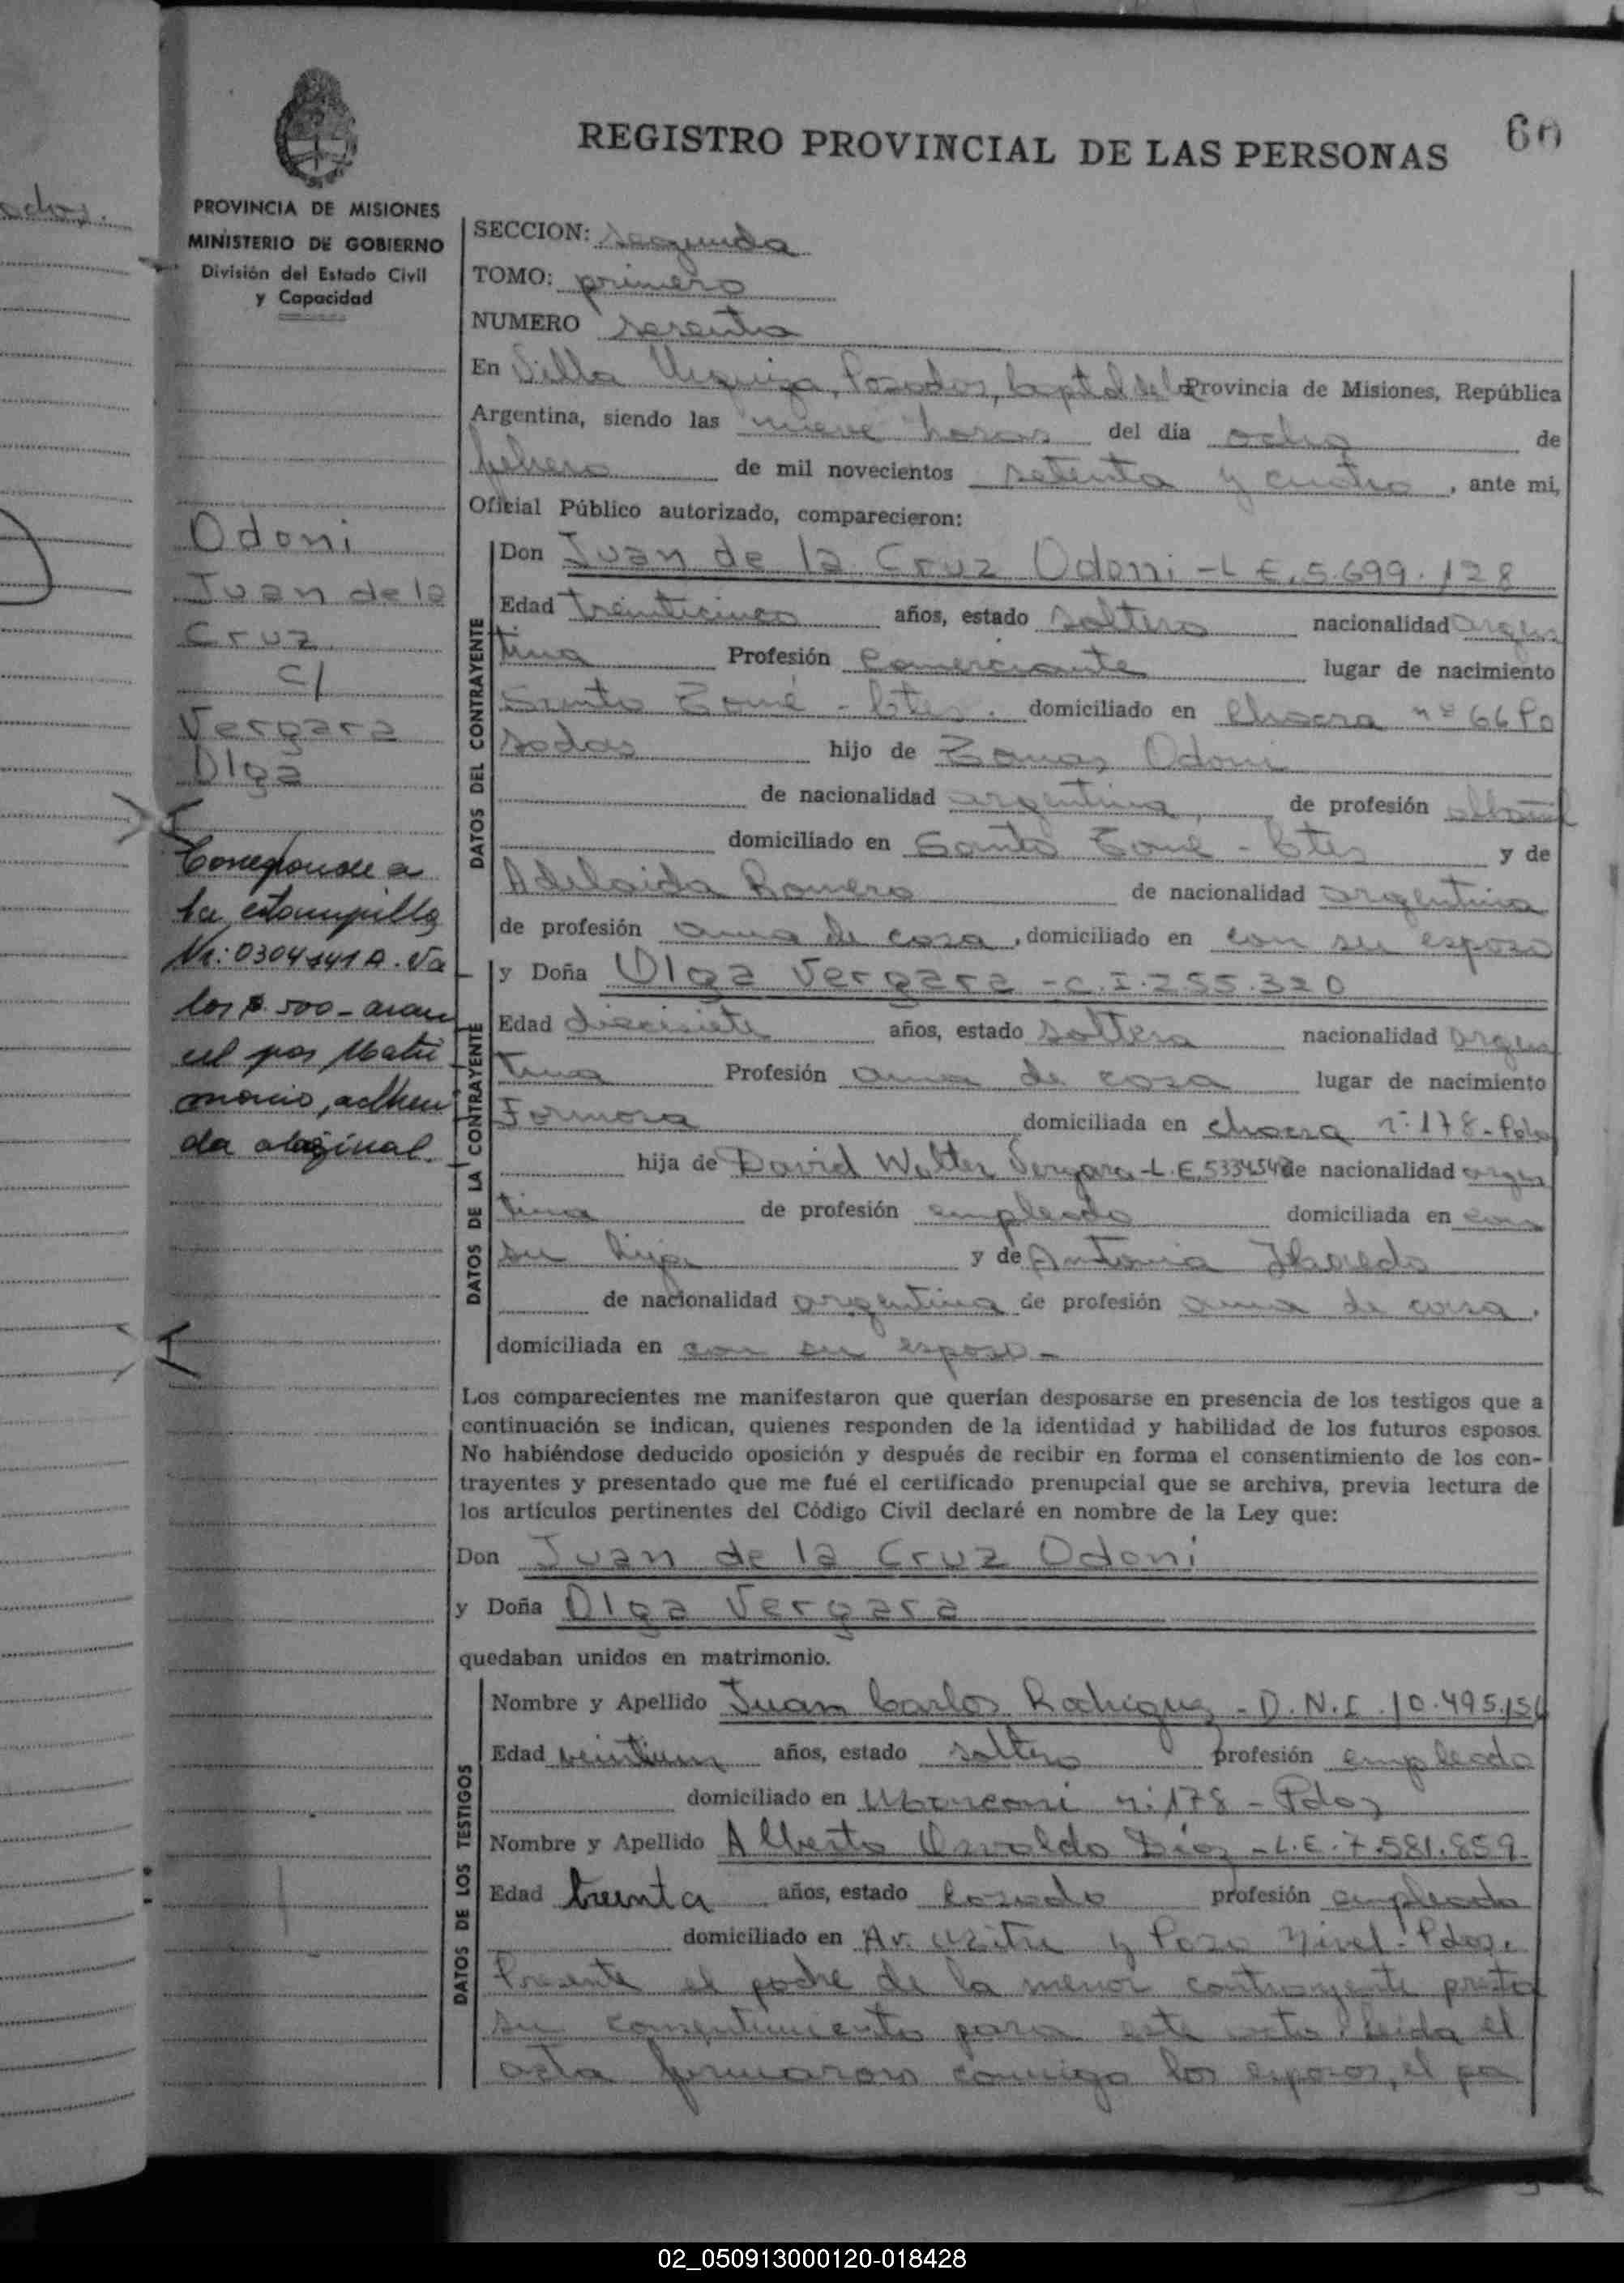 60
REGISTRO PROVINCIAL DE LAS PERSONAS
PROVINCIA DE MISIONES
MINISTERIO DE GOBIERNO
División del Estado Civil
y Capacidad
Odoni
Juan de la
Cruz
c/
Vergara
Olga
Corresponde a
la estampilla
Nr: 0304441 A. Va
lor $ 500 - aran
cel por Matri
monio, adheri
da al original.
SECCION: segunda
TOMO: primero
NUMERO sesenta
En Villa Urquiza, Posadas, Capital de la Provincia de Misiones, República
Argentina, siendo las nueve horas del día ocho de
febrero de mil novecientos setenta y cuatro, ante mi,
Oficial Público autorizado, comparecieron:
DATOS DEL CONTRAYENTE
Don Juan de la Cruz Odoni - L E. 5.699.128
Edad treinticinco años, estado soltero nacionalidad argen
tina Profesión Comerciante lugar de nacimiento
Santo Tomé - Ctes. domiciliado en Chacra nº 66 Po
sadas hijo de Tomas Odoni
de nacionalidad argentina, de profesión albañil
domiciliado en Santo Tomé - Ctes y de
Adelaida Romero de nacionalidad argentina
de profesión ama de casa, domiciliado en con su esposo
DATOS DE LA CONTRAYENTE
y Doña Olga Vergara - C.I. 255.320
Edad diecisiete años, estado soltera nacionalidad argen
tina Profesión ama de casa lugar de nacimiento
Formosa domiciliada en chacra n: 178 - Pdas
hija de David Walter Vergara - L.E. de nacionalidad argen
tina de profesión empleado domiciliada en con
su hija y de Antonia
de nacionalidad argentina de profesión ama de casa,
domiciliada en con su esposo -
Los comparecientes me manifestaron que querían desposarse en presencia de los testigos que a
continuación se indican, quienes responden de la identidad y habilidad de los futuros esposos.
No habiéndose deducido oposición y después de recibir en forma el consentimiento de los con-
trayentes y presentado que me fué el certificado prenupcial que se archiva, previa lectura de
los artículos pertinentes del Código Civil declaré en nombre de la Ley que:
Don Juan de la Cruz Odoni
y Doña Olga Vergara
quedaban unidos en matrimonio.
DATOS DE LOS TESTIGOS
Nombre y Apellido Juan Carlos Rodriguez - D.N.I. 10.495.156
Edad veintiun años, estado soltero profesión empleado
domiciliado en Marconi n: 178 - Pdas
Nombre y Apellido Alberto Osvaldo Diaz - L.E. 7.581.859.
Edad treinta años, estado casado profesión empleado
domiciliado en Av. Mitre y Paso Nivel - Pdas.
Presente el padre de la menor contrayente presta
su consentimiento para este acto. Leida el
acta firmaron conmigo los esposos, el pa
02_050913000120-018428